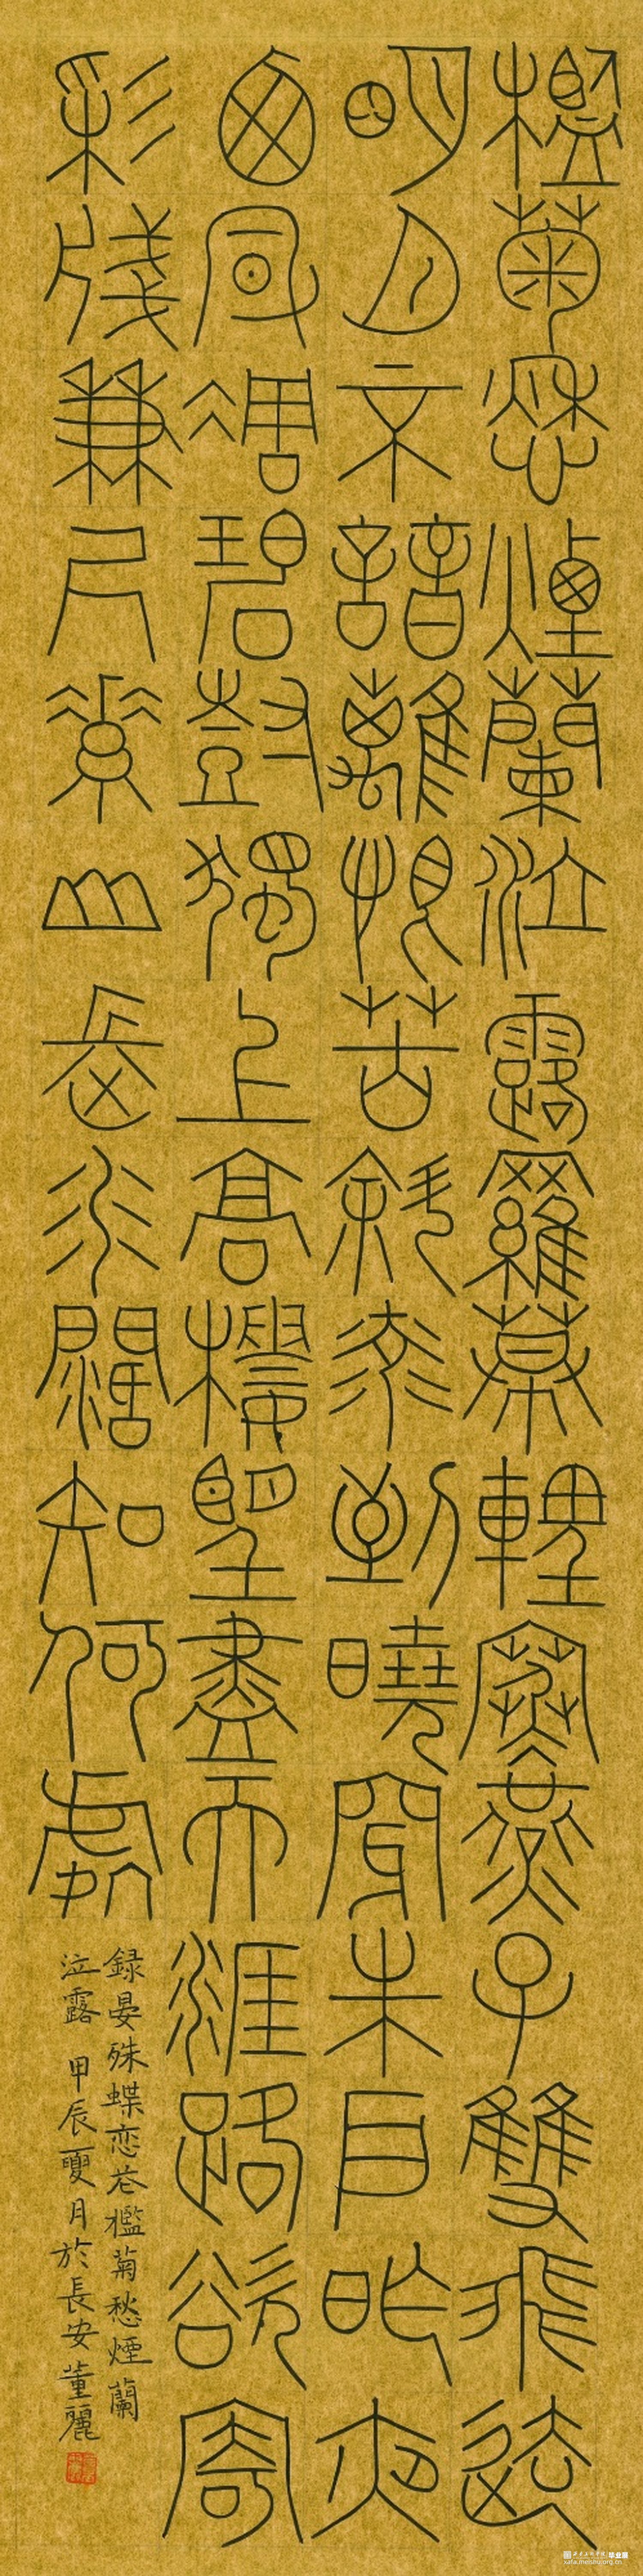 檻菊愁煙蘭泣露羅幕輕寒燕子雙飛去
明月不諳離恨苦斜光到曉穿朱戶昨夜
西風凋碧樹獨上高樓望盡天涯路欲寄
彩牋兼尺素山長水闊知何處
録晏殊蝶恋花檻菊愁煙蘭
泣露 甲辰夏月於長安董麗
西安美术学院 毕业展